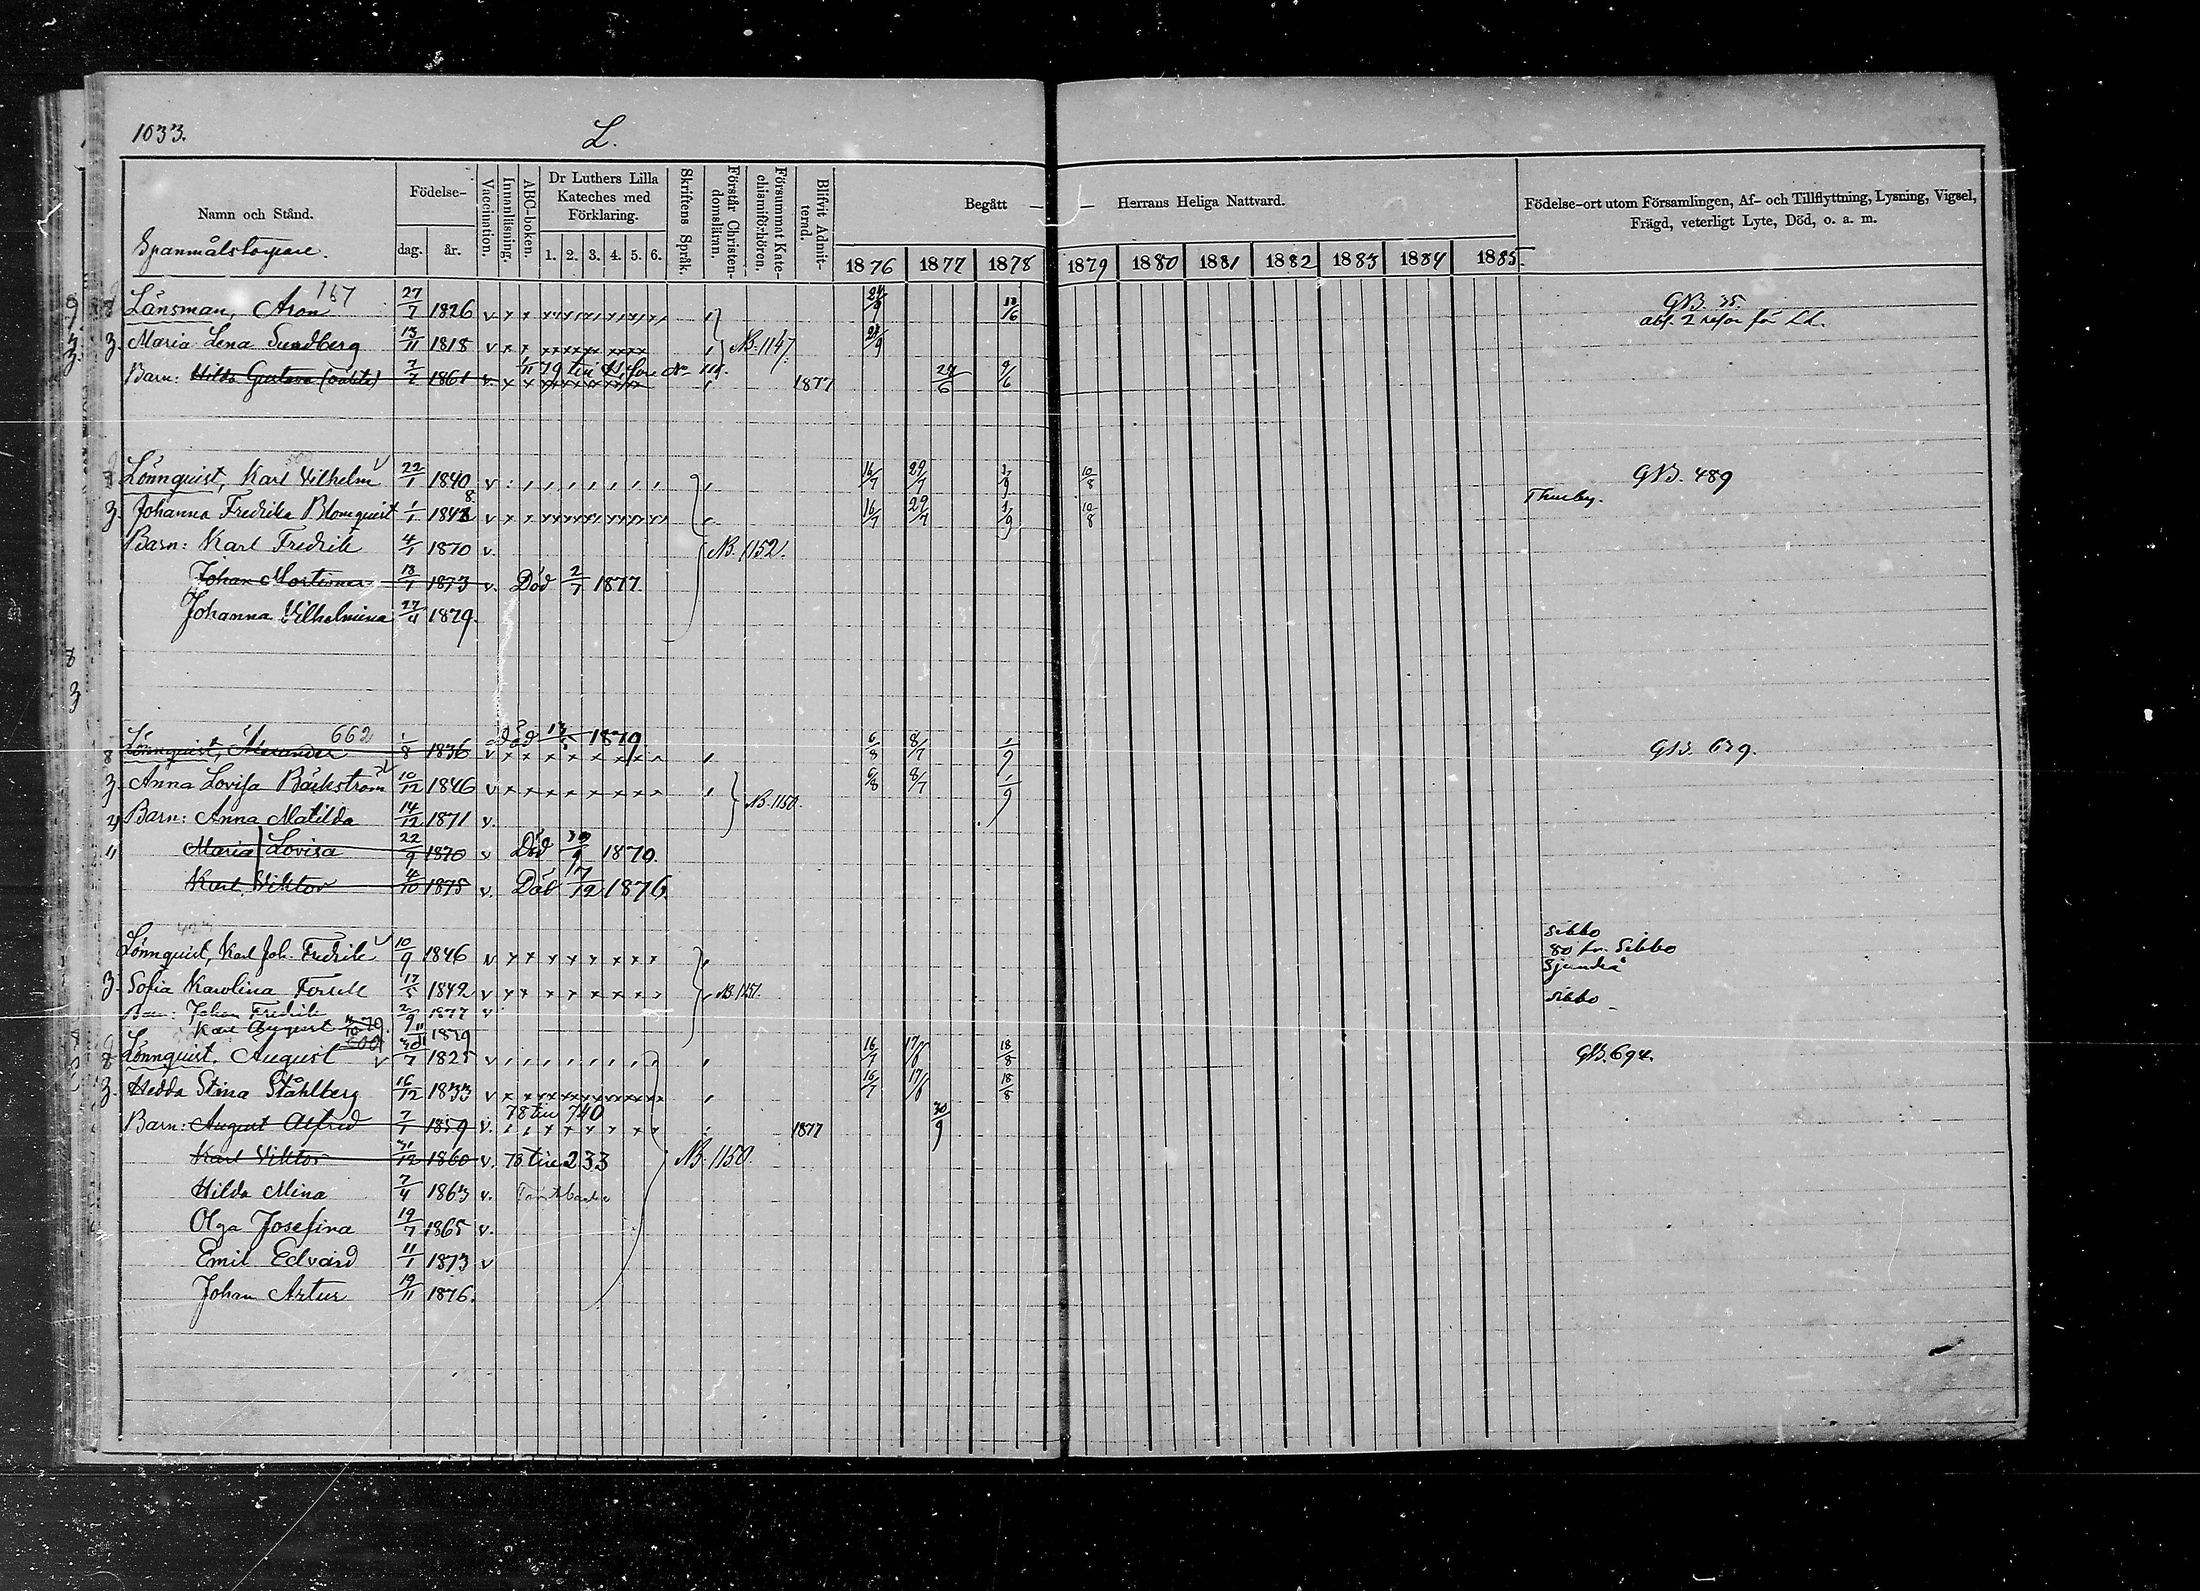 1033.
L.
Namn och Stånd.
Födelse-
dag.
år.
Vaccination.
Innanläsning.
ABC-boken.
Dr Luthers Lilla
Kateches med
Förklaring.
1. 2. 3. 4. 5. 6.
Skriftens Språk.
Förstår Christen-
domsläran.
Försummat Kate-
chismiförhören.
Blifvit Admit-
terad.
Begått
Herrans Heliga Nattvard.
Födelse-ort utom Församlingen, Af- och Tillflyttning, Lysning, Vigsel,
Frägd, veterligt Lyte, Död, o. a. m.
1876 1877 1878 1879 1880 1881 1882 1883 1884 1885.
167
Länsman, Aron 27/7 1826 v 24/9 GB. 35.
Maria Lena Sundberg 13/11 1818 v NB. 1147.
Barn: Hilda Gustava 1861 v. 1877
Lönnquist, Karl Vilhelm 22/1 1840 v 16/7 29/7 1/9 10/8 GB. 489
Johanna Fredrika Blomquist 1/1 v 16/7 29/7 1/9 10/8 Thusby.
Barn: Karl Fredrik 4/1 1870 v. NB. 1152.
Johan 18/1 1873 v. Död 2/7 1877.
Johanna Vilhelmina 27/4 1879.
662
Lönnquist, Alexander 1/8 1836 v Död 6/8 8/7 1/9
Anna Lovisa Bäckström 10/12 1846 v 6/8 8/7 1/9 NB. 1150.
Barn: Anna Matilda 14/12 1871 v.
Maria Lovisa 22/9 1870 v Död 1870.
Karl Viktor 4/10 1875 v. Död 17/12 1876.
Sibbo
Lönnquist, Karl Joh. Fredrik 10/9 1846 v 80 fr. Sibbo
Sjundeå
Sofia Karolina Forsell 17/5 1842 v Sibbo
Barn: Johan Fredrik 2/9 1877 v
Karl August 1879
Lönnquist, August 1825 v 16/7 17/6 18/8 GB. 694.
Hedda Stina Ståhlberg 16/12 1833 v 16/7 17/6 18/8
78 till 740
Barn: August Alfred 7/1 1859 v. 1877 30/9
Karl Viktor 31/12 1860 v. 78 till 233 NB. 1150.
Hilda Mina 7/4 1863 v.
Olga Josefina 19/7 1865 v.
Emil Edvard 11/1 1873 v
Johan Artur 19/11 1876.